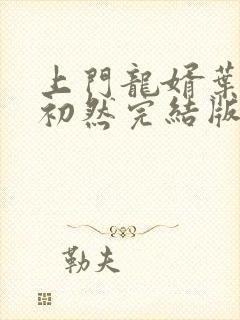 上門龍婿葉
初然完結版
勒夫